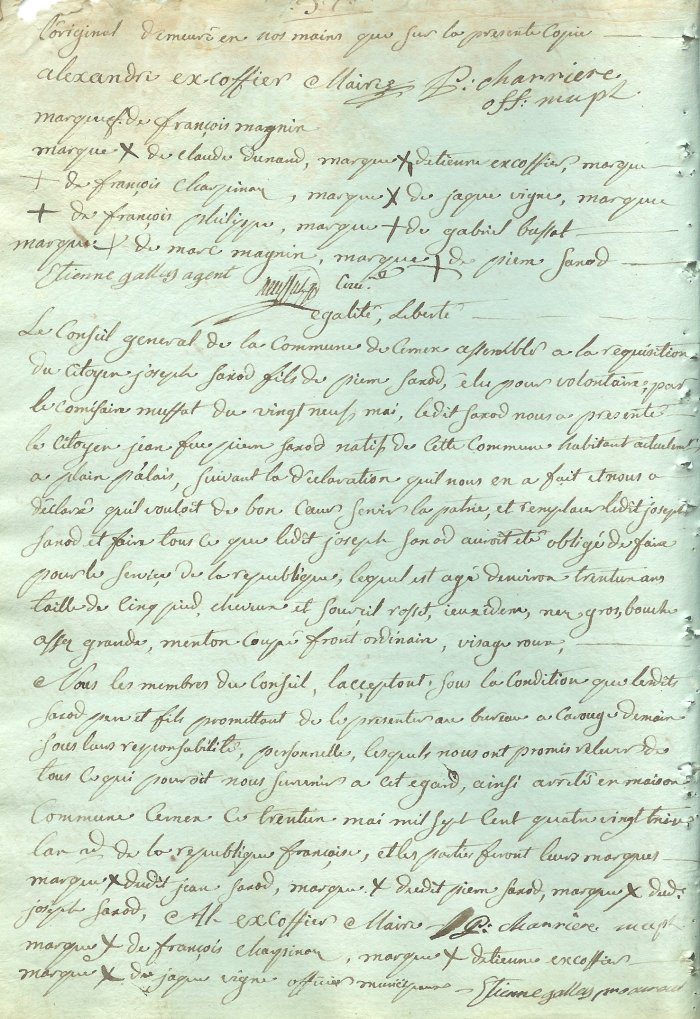 l'original demeuré en nos mains que sur la presente Copie
alexandre excoffier Maire P: charriere
off: mupl
marque de françois magnin
marque X de claude dunand, marque X detienne excoffier, marque
+ de françois Chapinou, marque X de jaque vigne, marque
+ de françois philippe, marque + de gabriel bussat
marque + de marc magnin, marque + de pierre Saxod
Etienne gallay agent
egalité, Liberté
Le Conseil general de la Commune de Cernex assemblés a la requisition
du Citoyen joseph Saxod fils de pierre Saxod, élu pour volontaire, par
le Comisaire mussat du vingt neuf mai, ledit Saxod nous a presenté
le Citoyen jean fue pierre Saxod natif de Cette Commune habitant actuelement
a plain palais, suivant la déclaration quil nous en a fait et nous a
déclaré quil vouloit de bon Cœur servir la patrie, et remplace ledit joseph
Saxod et faire tous ce que ledit joseph Saxod auroit été obligé de faire
pour le Service de la republique, lequel est agé denviron trentun ans
taille de Cinq pied, cheveux et sourcil rosset, ieux idem, nez gros, bouche
assez grande, menton Coupé front ordinaire, visage ron,
Nous les membres du Conseil, lacceptont sous la Condition que lesdits
Saxod pere et fils promettant de le presenter au bureau a Carouge demain
sous leurs responsabilité, personnelle, lesquels nous ont promis relever de
tous Ce qui pouroit nous survenir a cet egard, ainsi arreté en maison
Commune Cernex Ce trentun mai mil sept Cent quatre vingt treize
lan 2d de la republique françoise, et les parties feront leurs marques
marque X dudit jean Saxod, marque X dudit pierre Saxod, marque X dud:
joseph Saxod, Al excoffier Maire P: charriere mupl
marque X de françois Chapinou, marque X detienne excoffier
marque X de jaque vigne officier municipaux Etienne gallay procureur